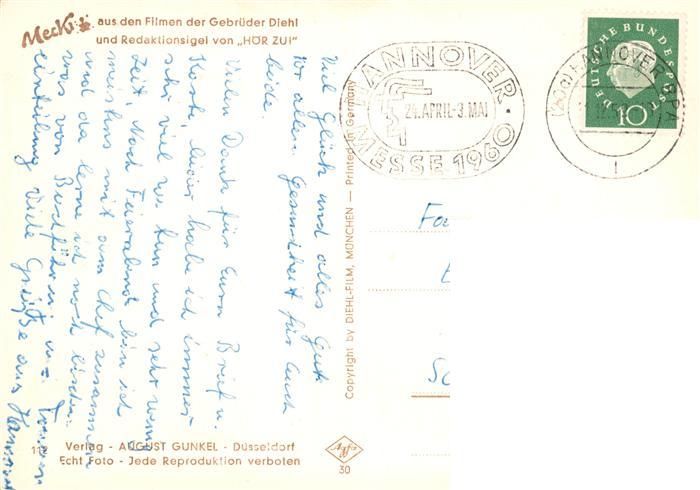 Mecki aus den Filmen der Gebrüder Diehl
und Redaktionsigel von „HÖR ZU!"
Viel Glück und alles Gute
vor allem Gesundheit für Euch
beide.
Vielen Dank für Euren Brief u.
Karte, leider habe ich immer
sehr viel zu tun und sehr wenig
Zeit. Nach Feierabend bin ich
meistens mit dem Chef zusammen
und da lerne ich noch bisschen
was von Buchführung u.
einteilung Viele Grüße aus Hannover
Copyright by DIEHL-FILM, MÜNCHEN — Printed in Germany
HANNOVER
24. APRIL-3. MAI
MESSE 1960
HANNOVER
DEUTSCHE BUNDESPOST
10
11
Verlag - AUGUST GUNKEL - Düsseldorf
Echt Foto - Jede Reproduktion verboten
Agfa
30